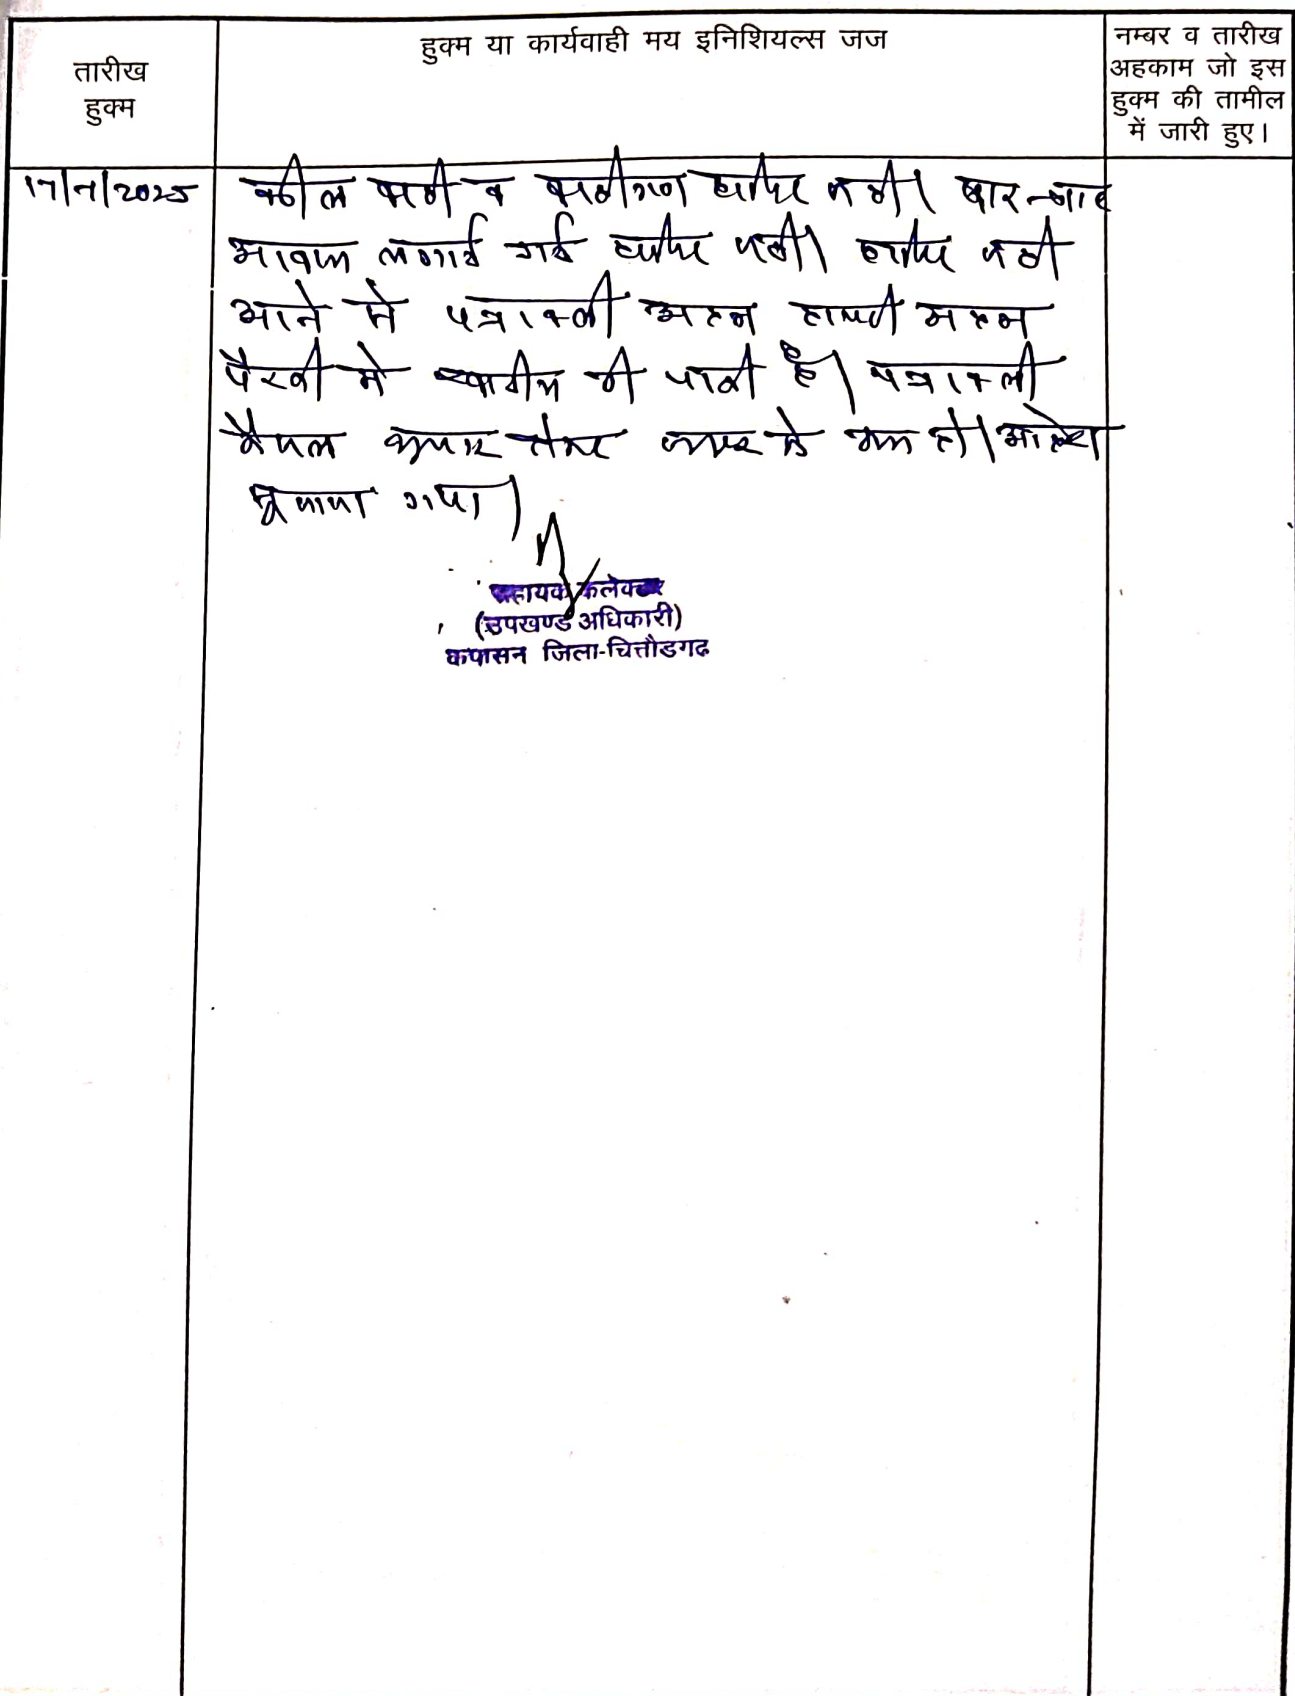 तारीख
हुक्म
हुक्म या कार्यवाही मय इनिशियल्स जज
नम्बर व तारीख
अहकाम जो इस
हुक्म की तामील
में जारी हुए।
17/7/2025
वकील वादी व वादीगण हाजिर नही। बार-बार
आवाज लगाई गई हाजिर नही। हाजिर नही
आने से पत्रावली अदम हाजरी अदम
पैरवी मे खारीज की जाती है। पत्रावली
फैसल शुमार होकर नम्बर से कम हो। आदेश
सुनाया गया।
सहायक कलेक्टर
(उपखण्ड अधिकारी)
कपासन जिला-चित्तौडगढ